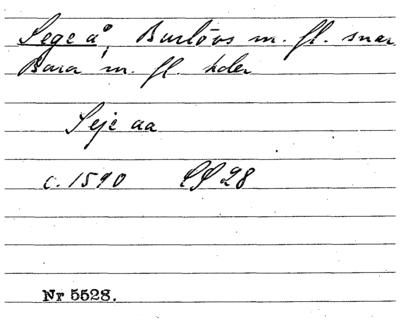 Sege å, Burlövs m. fl. snar
Bara m. fl. hder
Seje aa
c. 1590 28
Nr 5528.